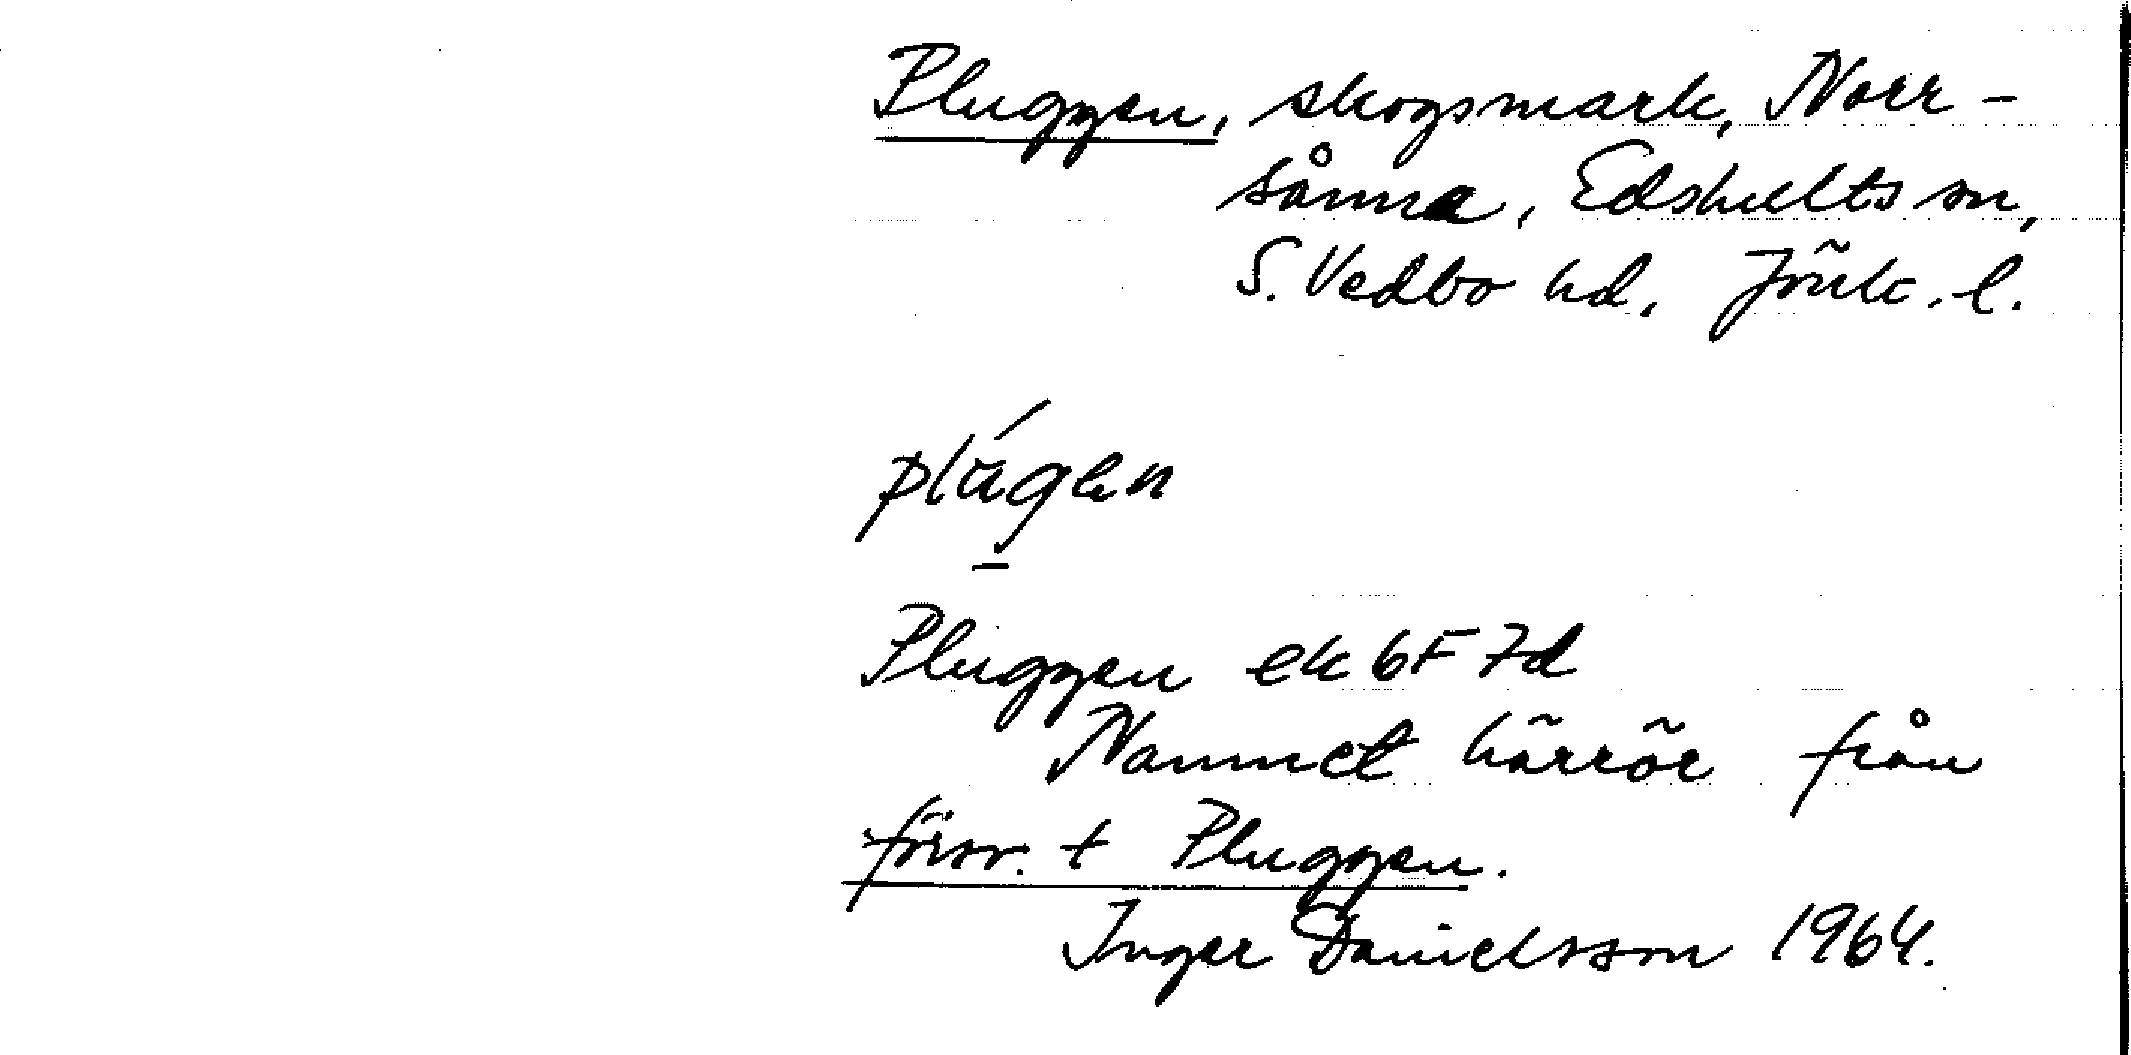 Pluggen, skogsmark, Norr-
sånna, Edshults sn,
S. Vedbo hd. Jönk. l.
plúg̲en
Pluggen ek 6F 7d
Namnet härrör från
försv. t Pluggen.
Inger Danielsson 1964.